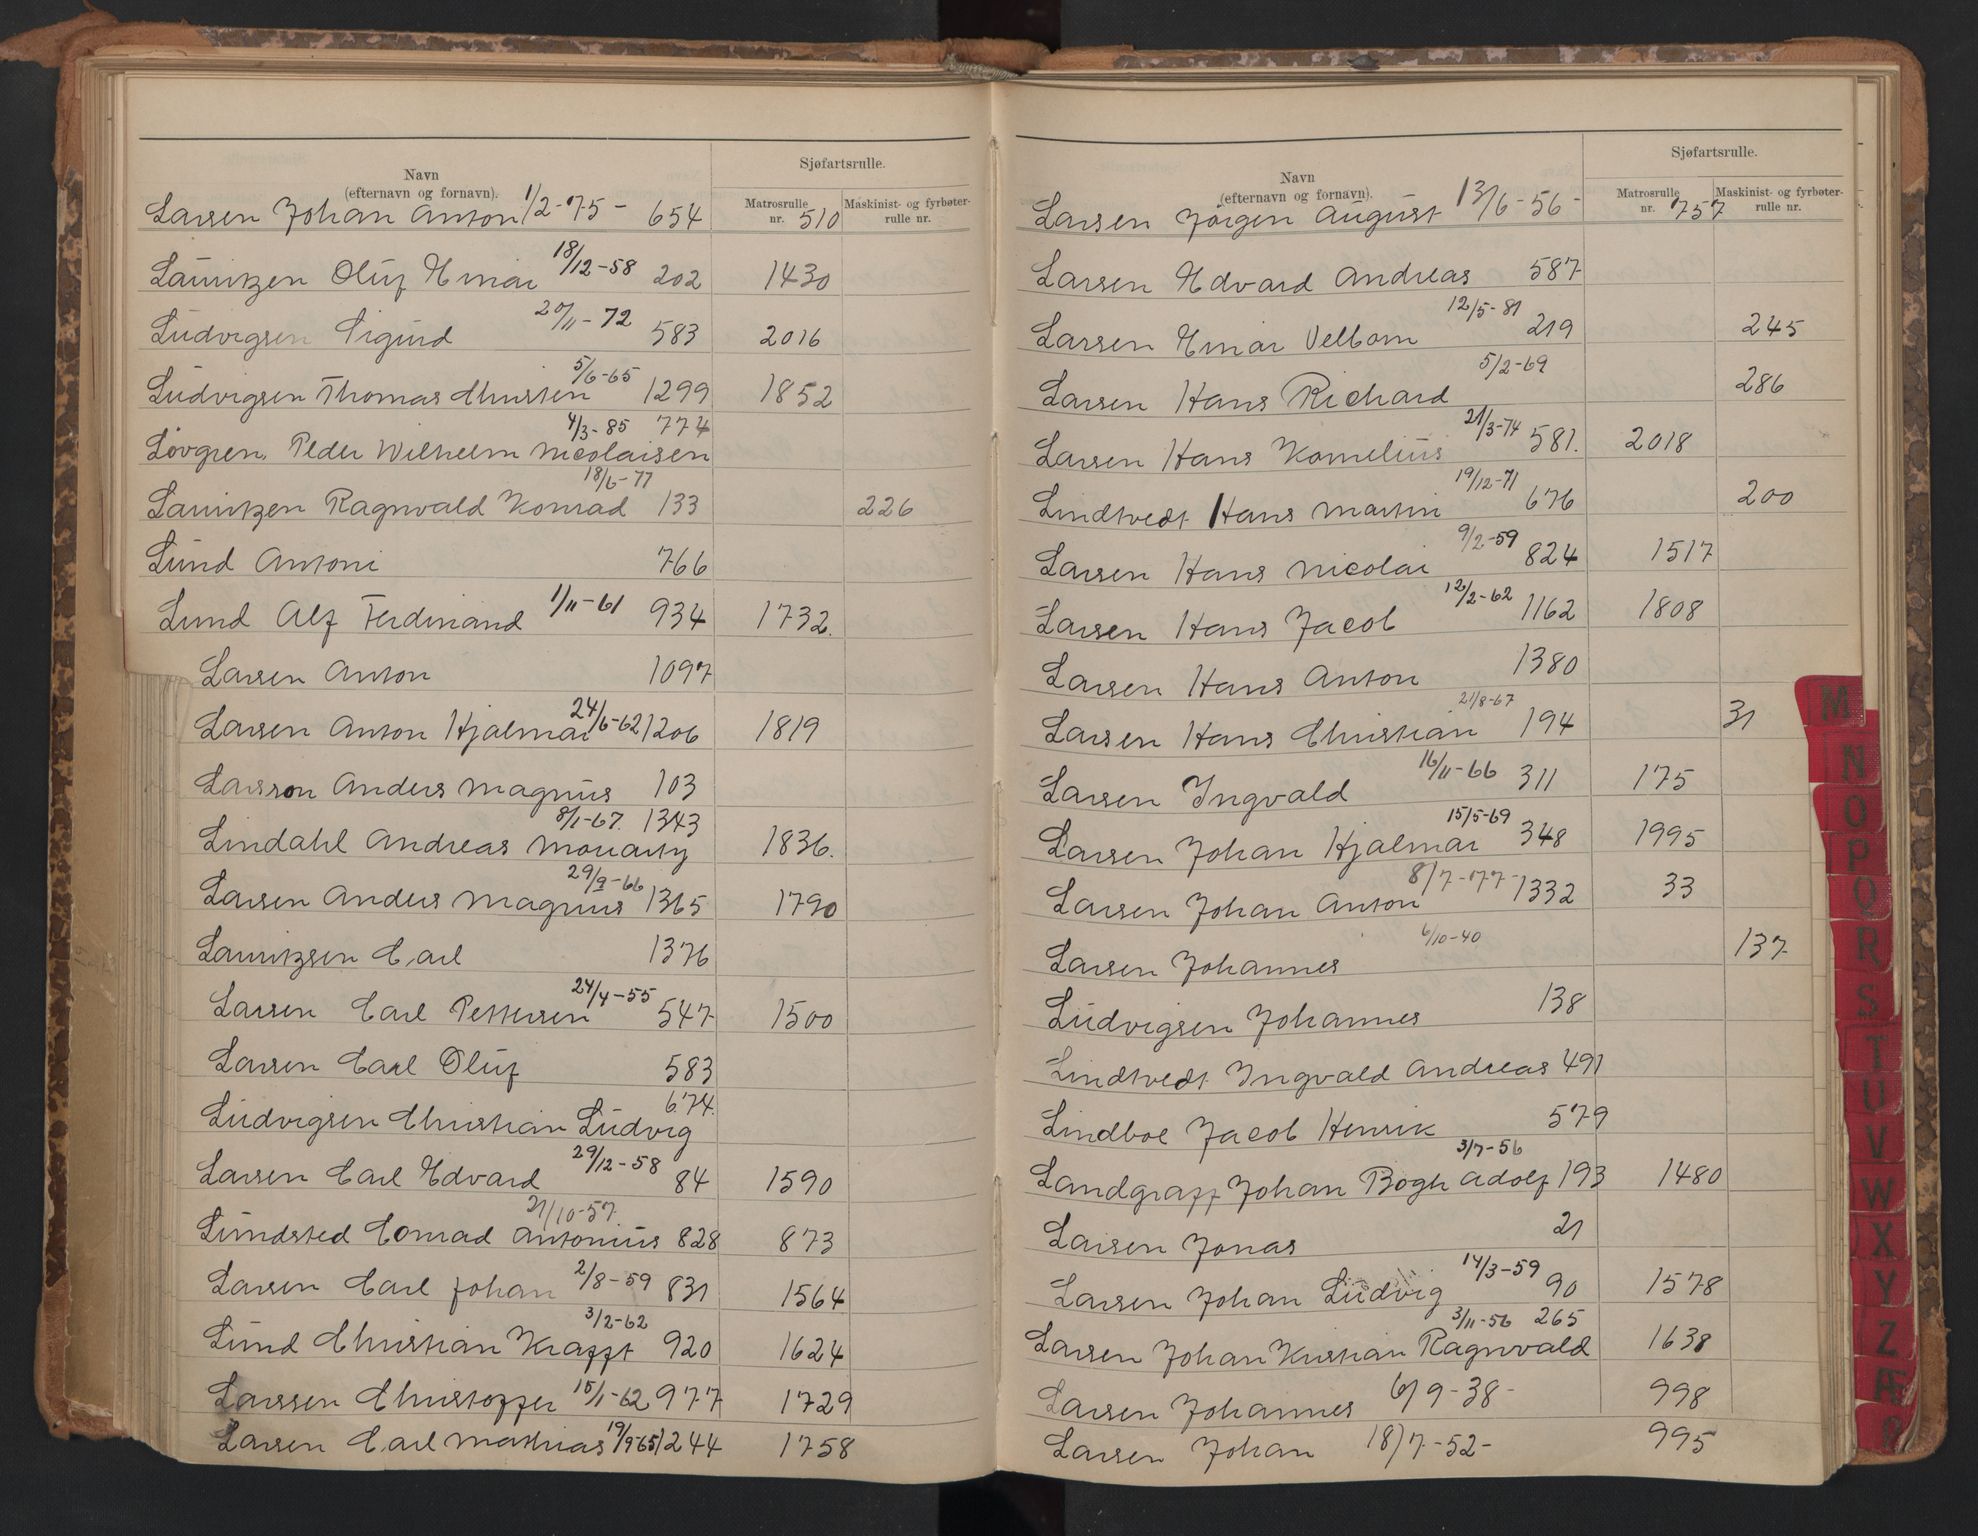 Sjøfartsrulle.
Navn
(efternavn og fornavn).
Matrosrulle nr.
Maskinist- og fyrbøter-rulle nr.
Larsen Johan Anton 1/2-75- 654 510
Lauritzen Oluf Einar 18/12-58 202 1430
Ludvigsen Sigurd 20/11-72 583 2016
Ludvigsen Thomas Christen 5/6-65 1299 1852
4/3-85 774
Løvgren, Peder Wilhelm Nicolaisen
18/6-77
Lauritzen Ragnvald Konrad 133 226
Lund Antoni 766
Lund Alf Ferdinand 1/11-61 934 1732.
Larsen Anton 1097
Larsen Anton Hjalmar 24/6-62 1206 1819
Larsson Anders Magnus 103
8/1-67. 1343
Lindahl Andreas Moriarty 1836.
29/9-66
Larsen Anders Magnus 1365 1790
Lauritzsen Carl 1376
Larsen Carl Pettersen 24/4-55 547 1500
Larsen Carl Oluf 583
674.
Ludvigsen Christian Ludvig
Larsen Carl Edvard 29/12-58 84 1590
21/10-57.
Lundsted Conrad Antonius 828 873
Larsen Carl Johan 2/8-59 831 1564
3/2-62
Lund Christian Krafft 920 1624
Larssen Christoffer 15/1-62 977 1729
Larsen Carl Mathias 19/9-65 1244 1758
Sjøfartsrulle.
Navn
(efternavn og fornavn).
Matrosrulle nr.
Maskinist- og fyrbøter-rulle nr.
Larsen Jørgen August 13/6-56- 757
Larsen Edvard Andreas 587
12/5-81
Larsen Einar Velbom 219 245
5/2-69
Larsen Hans Richard 286
Larsen Hans Kornelius 21/3-74 581. 2018
19/12-71
Lindtvedt Hans Martin 676 200
9/2-59
Larsen Hans Nicolai 824 1517
Larsen Hans Jacob 12/2-62 1162 1808
Larsen Hans Anton 1380
21/8-67
Larsen Hans Christian 194 31
Larsen Ingvald 16/11-66 311 175
15/5-69
Larsen Johan Hjalmar 348 1995
Larsen Johan Anton 8/7-77- 1332 33
6/10-40
Larsen Johannes 137
Ludvigsen Johannes 138
Lindtvedt Ingvald Andreas 491
Lindboe Jacob Henrik 579
3/7-56
Landgraff Johan Bøgh Adolf 193 1480
Larsen Jonas 21
Larsen Johan Ludvig 14/3-59 90 1578
3/11-56 265
Larsen Johan Kristian Ragnvald 1638
Larsen Johannes 6/9-38- 998
Larsen Johan 18/7-52- 995
M
N
O
P
Q
R
S
T
U
V
W
X
Y
Z
Æ
Ø